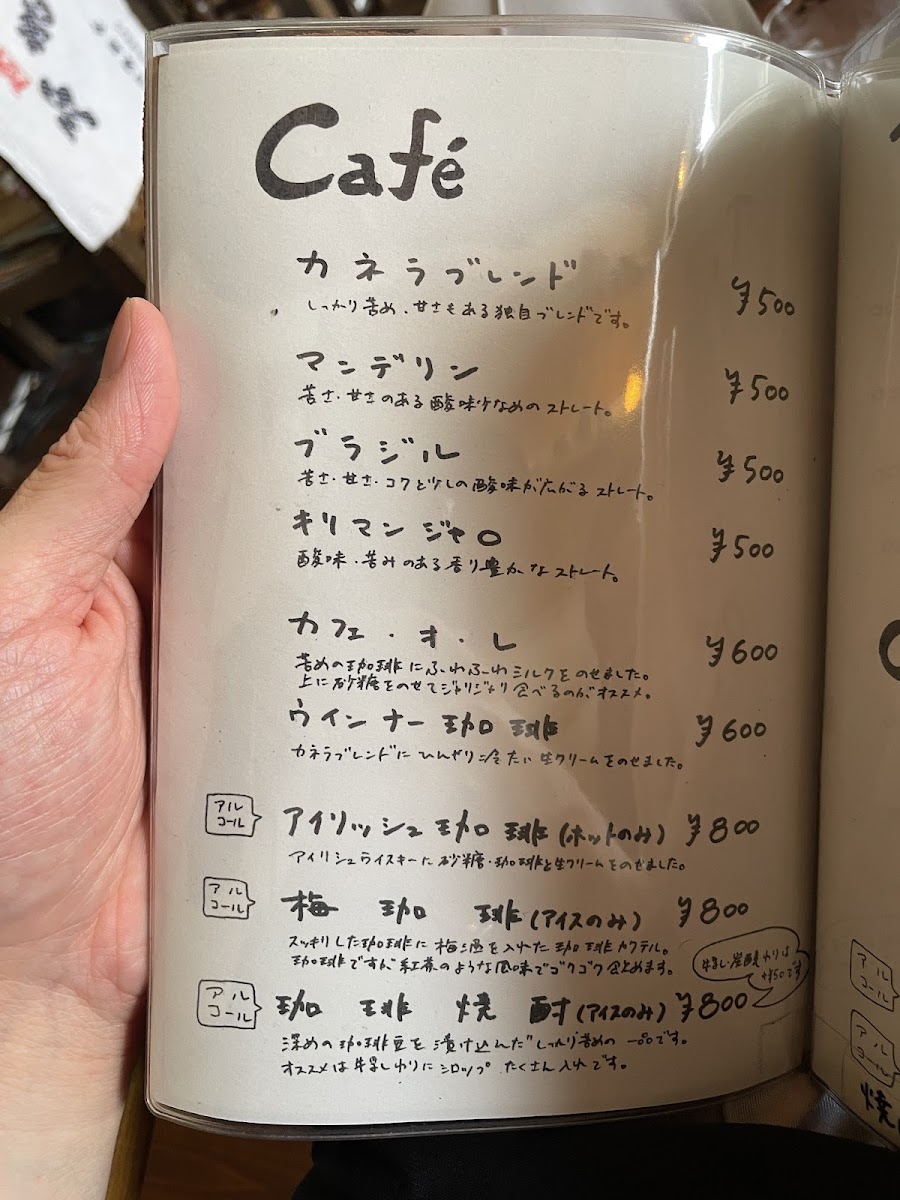 Café
カネラブレンド ¥500
しっかり苦め、甘さもある独自ブレンドです。
マンデリン ¥500
苦さ・甘さのある酸味少なめのストレート。
ブラジル ¥500
苦さ・甘さ・コクと少しの酸味が広がるストレート。
キリマンジャロ ¥500
酸味・苦みのある香り豊かなストレート。
カフェ・オ・レ ¥600
苦めの珈琲にふわふわミルクをのせました。
上に砂糖をのせてジャリジャリ食べるのがオススメ。
ウインナー珈琲 ¥600
カネラブレンドにひんやり冷たい生クリームをのせました。
アルコール
アイリッシュ珈琲(ホットのみ) ¥800
アイリシュウイスキーに砂糖・珈琲と生クリームをのせました。
アルコール
梅珈琲(アイスのみ) ¥800
スッキリした珈琲に梅酒を入れた珈琲カクテル。
珈琲ですが紅茶のような風味でゴクゴク飲めます。
牛乳・炭酸わりは
+¥50です
アルコール
珈琲焼酎(アイスのみ) ¥800
深めの珈琲豆を漬け込んだしっかり苦めの一品です。
オススメは牛乳わりにシロップたくさん入れです。
アルコール
アルコール
焼